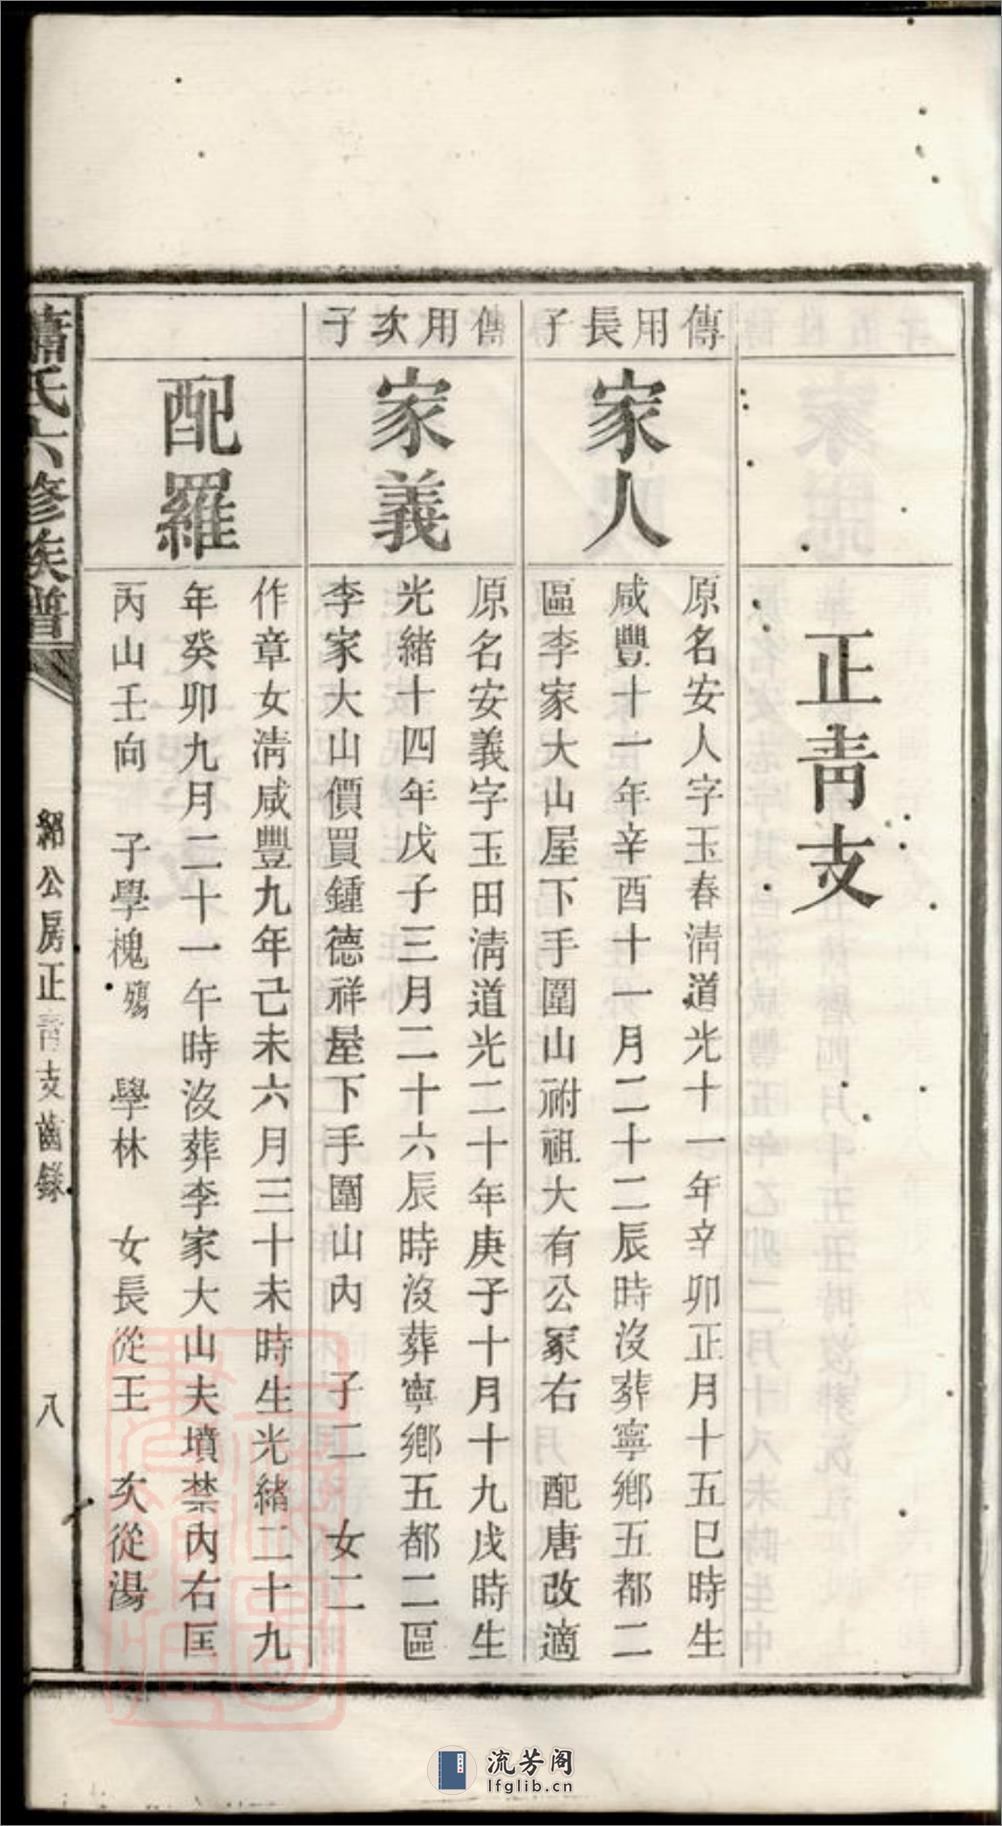 正青支
傳用長子
家人
原名安人字玉春清道光十一年辛卯正月十五巳時生
咸豐十一年辛酉十一月二十二辰時沒葬寧鄉五都二
區李家大山屋下手圍山祔祖大有公冢右 配唐改適
傳用次子
家義
原名安義字玉田清道光二十年庚子十月十九戌時生
光緒十四年戊子三月二十六辰時沒葬寧鄉五都二區
李家大山價買鍾德祥屋下手圍山內 子二 女二
配羅
作章女清咸豐九年己未六月三十未時生光緒二十九
年癸卯九月二十一午時沒葬李家大山夫墳禁內右匡
丙山壬向 子學槐殤 學林 女長從王 次從湯
蕭氏六修族譜
公房正青支齒錄
八
流芳阁
lfglib.cn